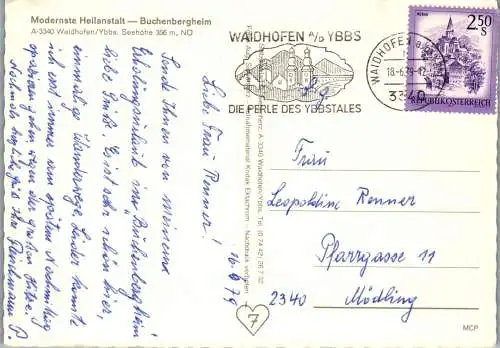 Modernste Heilanstalt — Buchenbergheim
A-3340 Waidhofen/Ybbs. Seehöhe 356 m, NÖ
WAIDHOFEN a/D YBBS
DIE PERLE DES YBBSTALES
WAIDHOFEN a.d.
18.-6.79-12
3340
2,50
S
REPUBLIK ÖSTERREICH
16.6.79
Liebe Frau Renner!
Sende Ihnen von meinem
Erholungsurlaub im Buchenbergheim
liebe Grüße. Es ist sehr schön hier,
einmalige Wanderwege. Leider konnte
ich erst immer am späten Nachmittag
spazieren gehen wegen der großen Hitze.
Nochmals herzliche Grüße Ihre
A-3340 Waidhofen/Ybbs, Tel. (0 74 42) 26 7 32
Kodak Ektachrom - Nachdruck verboten
Frau
Leopoldine Renner
Pfarrgasse 11
2340 Mödling
7
MCP